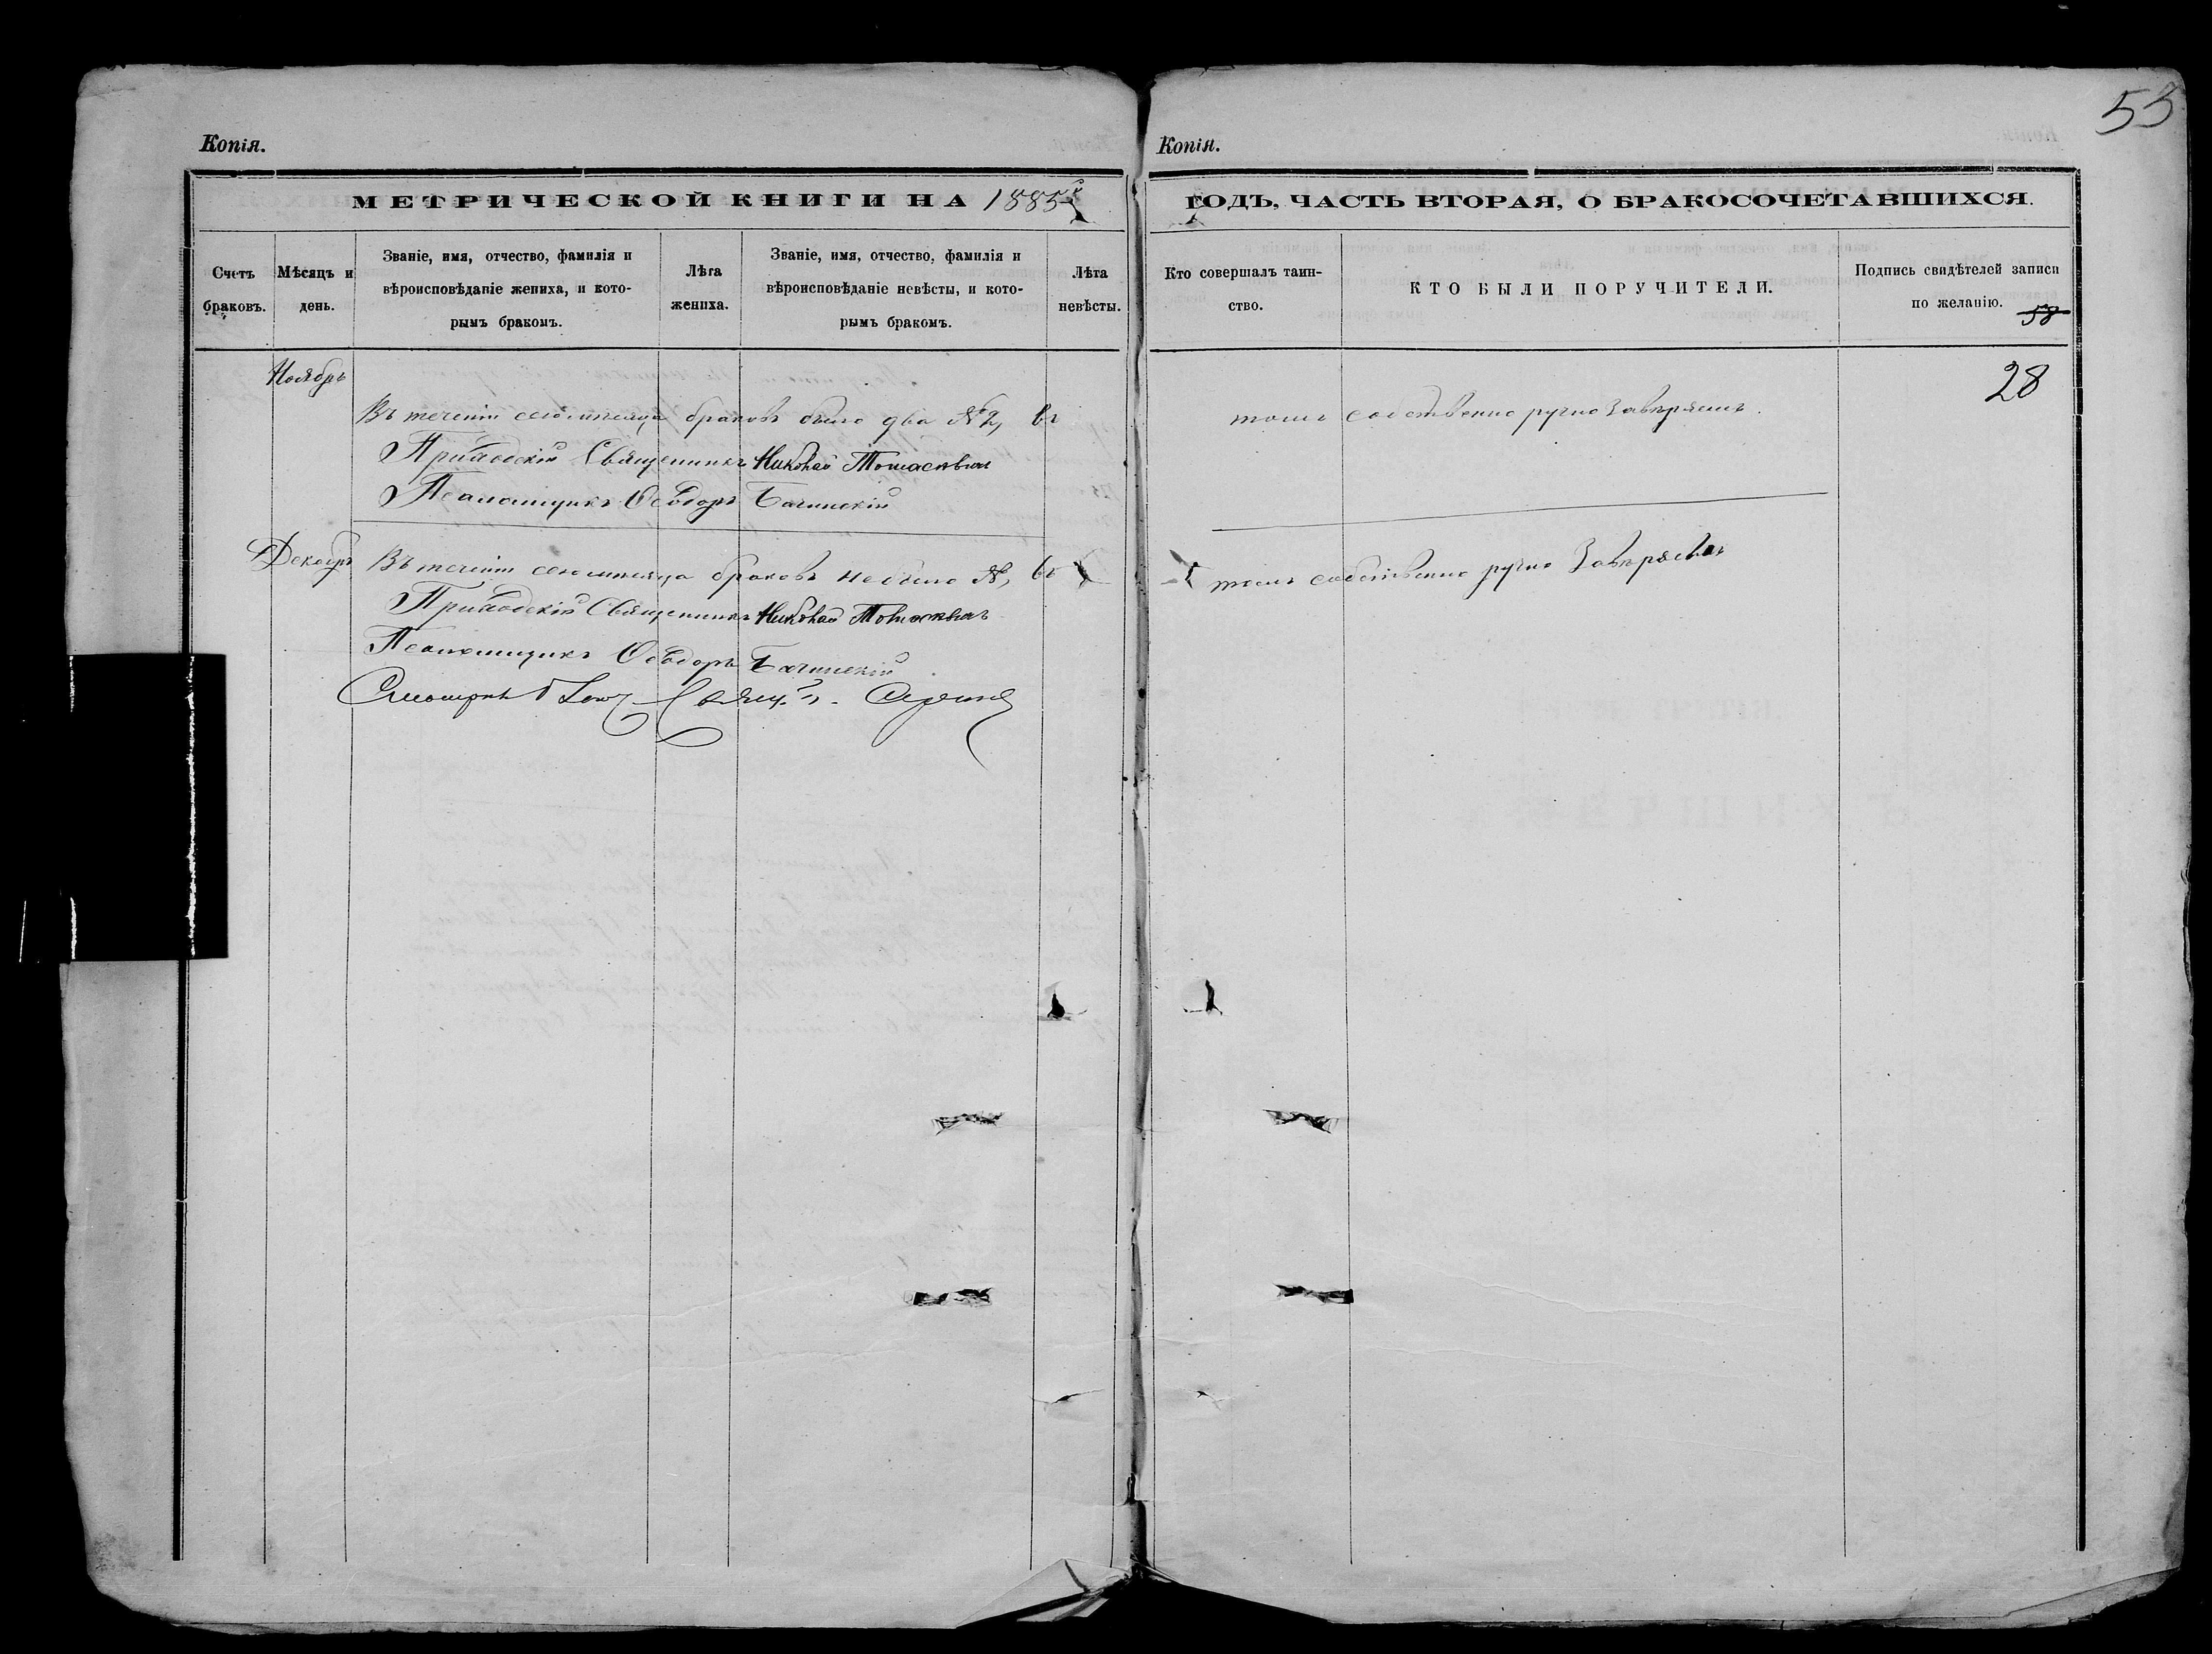 53
Копія.
Копія.
МЕТРИЧЕСКОЙ КНИГИ НА 1885
ГОДЪ, ЧАСТЬ ВТОРАЯ, О БРАКОСОЧЕТАВШИХСЯ.
Счетъ браковъ.
Мѣсяцъ и день.
Званіе, имя, отчество, фамилія и
вѣроисповѣданіе жениха, и кото-
рымъ бракомъ.
Лѣта жениха.
Званіе, имя, отчество, фамилія и
вѣроисповѣданіе невѣсты, и кото-
рымъ бракомъ.
Лѣта невѣсты.
Кто совершалъ таин-
ство.
КТО БЫЛИ ПОРУЧИТЕЛИ.
Подпись свидѣтелей записи
по желанію.
58
28
Ноябрь
Въ теченіи сего мѣсяца браковъ было два №2, въ
томъ собственно ручно Завѣряемъ.
Приходскій Священникъ Николай
Псаломщикъ Ѳеодоръ Бачинскій
Декабрь
Въ теченіи сего мѣсяца браковъ небыло №, въ
томъ собственно ручно Завѣряемъ
Приходскій Священникъ Николай
Псаломщикъ Ѳеодоръ Бачинскій